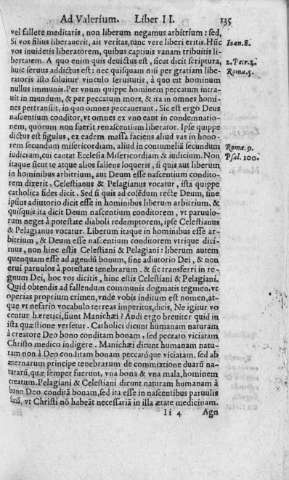 Ad Valerium. Liber II. 135
vel fallere meditaris, non liberum negamus arbitrium: sed,
Si vos filius liberaverit, ait veritas, tunc vere liberi eritis. Hūc Ioan.8.
vos invidetis liberatorem, quibus captivis vanam tribuitis li-
bertatem. A quo enim quis devictus est, sicut dicit scriptura, 2.Petr.2.
huic servus addictus est: nec quisquam nisi per gratiam libe- Roma.5.
ratoris isto soluitur vinculo servitutis, à quo est hominum
nullus immunis. Per unum quippe hominem peccatum intra-
vit in mundum, & per peccatum mors, & ita in omnes homi-
nes pertransiit, in quo omnes peccaverunt. Sic est ergò Deus
nascentium conditor, vt omnes ex vno eant in condemnatio-
nem, quorum non fuerit renascentium liberator. Ipse quippe
dictus est figulus, ex eadem massa faciens aliud vas in hono- Roma.9.
rem secundum misericordiam, aliud in contumeliã secundũ Psal.100.
iudicium, cui cantat Ecclesia Misericordiam & iudicium. Non
itaque sicut te atque alios fallens loqueris, si quis aut liberum
in hominibus arbitrium, aut Deum esse nascentium condito-
rem dixerit, Celestianus & Pelagianus vocatur, ista quippe
catholica fides dicit. Sed si quis ad colēdum rectè Deum, sine
ipsius adiutorio dicit esse in hominibus liberum arbitrium, &
quisquis ita dicit Deum nascentium conditorem, vt parvulo-
rum neget à potestate diaboli redemptorem, ipse Celestianus
& Pelagianus vocatur. Liberum itaque in hominibus esse arbi-
trium, & Deum esse nascentium conditorem vtrique dici-
mus, non hinc estis Celestiani & Pelagiani: liberum autem
quenquam esse ad agendũ bonum, sine adiutorio Dei, & non
erui parvulos à potestate tenebrarum, & sic transferri in re-
gnum Dei, hoc vos dicitis, hinc estis Celestiani & Pelagiani.
Quid obtendis ad fallendum communis dogmatis tegmen, vt
operias proprium crimen, vnde vobis inditum est nomen, at-
que vt nefario vocabulo terreas imperitos, dicis, Ne igitur vo
centur hæretici, fiunt Manichæi? Audi ergo breviter quid in
ista quæstione versetur. Catholici dicunt humanam naturam
à creatore Deo bono conditam bonam, sed peccato viciatam
Christo medico indigere. Manichæi dicunt humanam natu-
ram non à Deo conditam bonam peccatóque viciatam, sed ab
æternarum principe tenebrarum de commixtione duarũ na-
turarū, quæ semper fuerunt, vna bona & vna mala, hominem
creatum. Pelagiani & Celestiani dicunt naturam humanam à
bono Deo conditã bonam, sed ita esse in nascentibus parvulis
sanã, vt Christi nō habeāt necessariā in illa ætate medicinam.
Ii 4 Agn